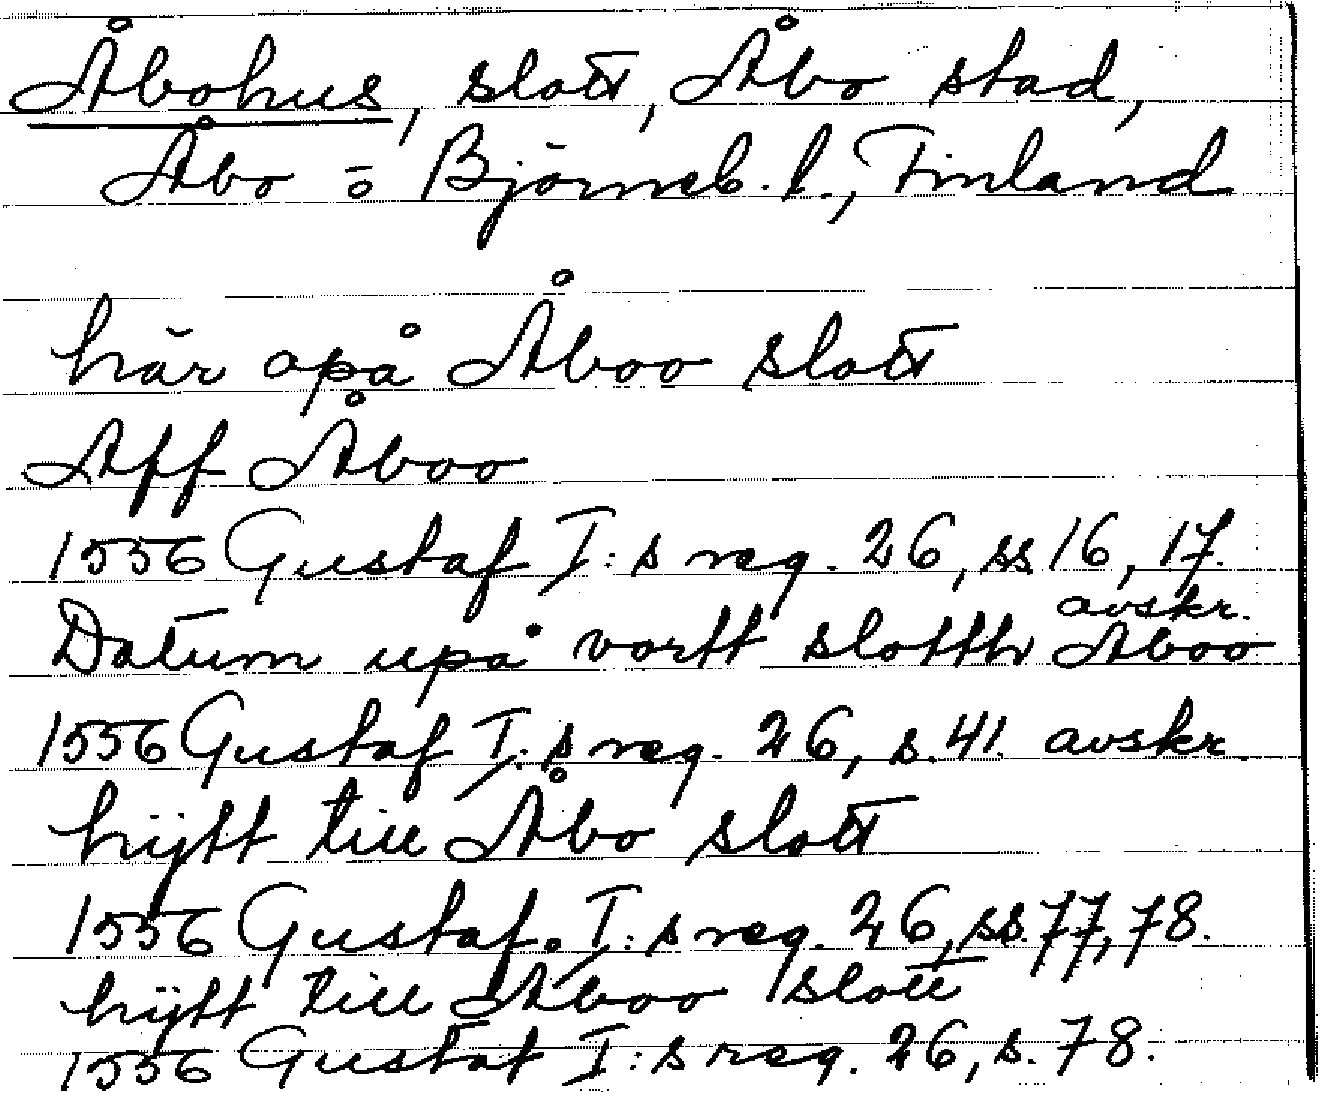 Åbohus, slott, Åbo stad,
Åbo o Björneb. l., Finland
här opå Åboo slott
Aff Åboo
1556 Gustaf I:s reg. 26, ss 16, 17.
avskr.
Datum upå vortt slotth Aboo
1556 Gustaf I:s reg. 26, s. 41. avskr
hijtt till Åbo slott
1556 Gustaf I:s reg. 26, ss. 77, 78.
hijtt till Åboo slott
1556 Gustaf I:s reg. 26, s. 78.